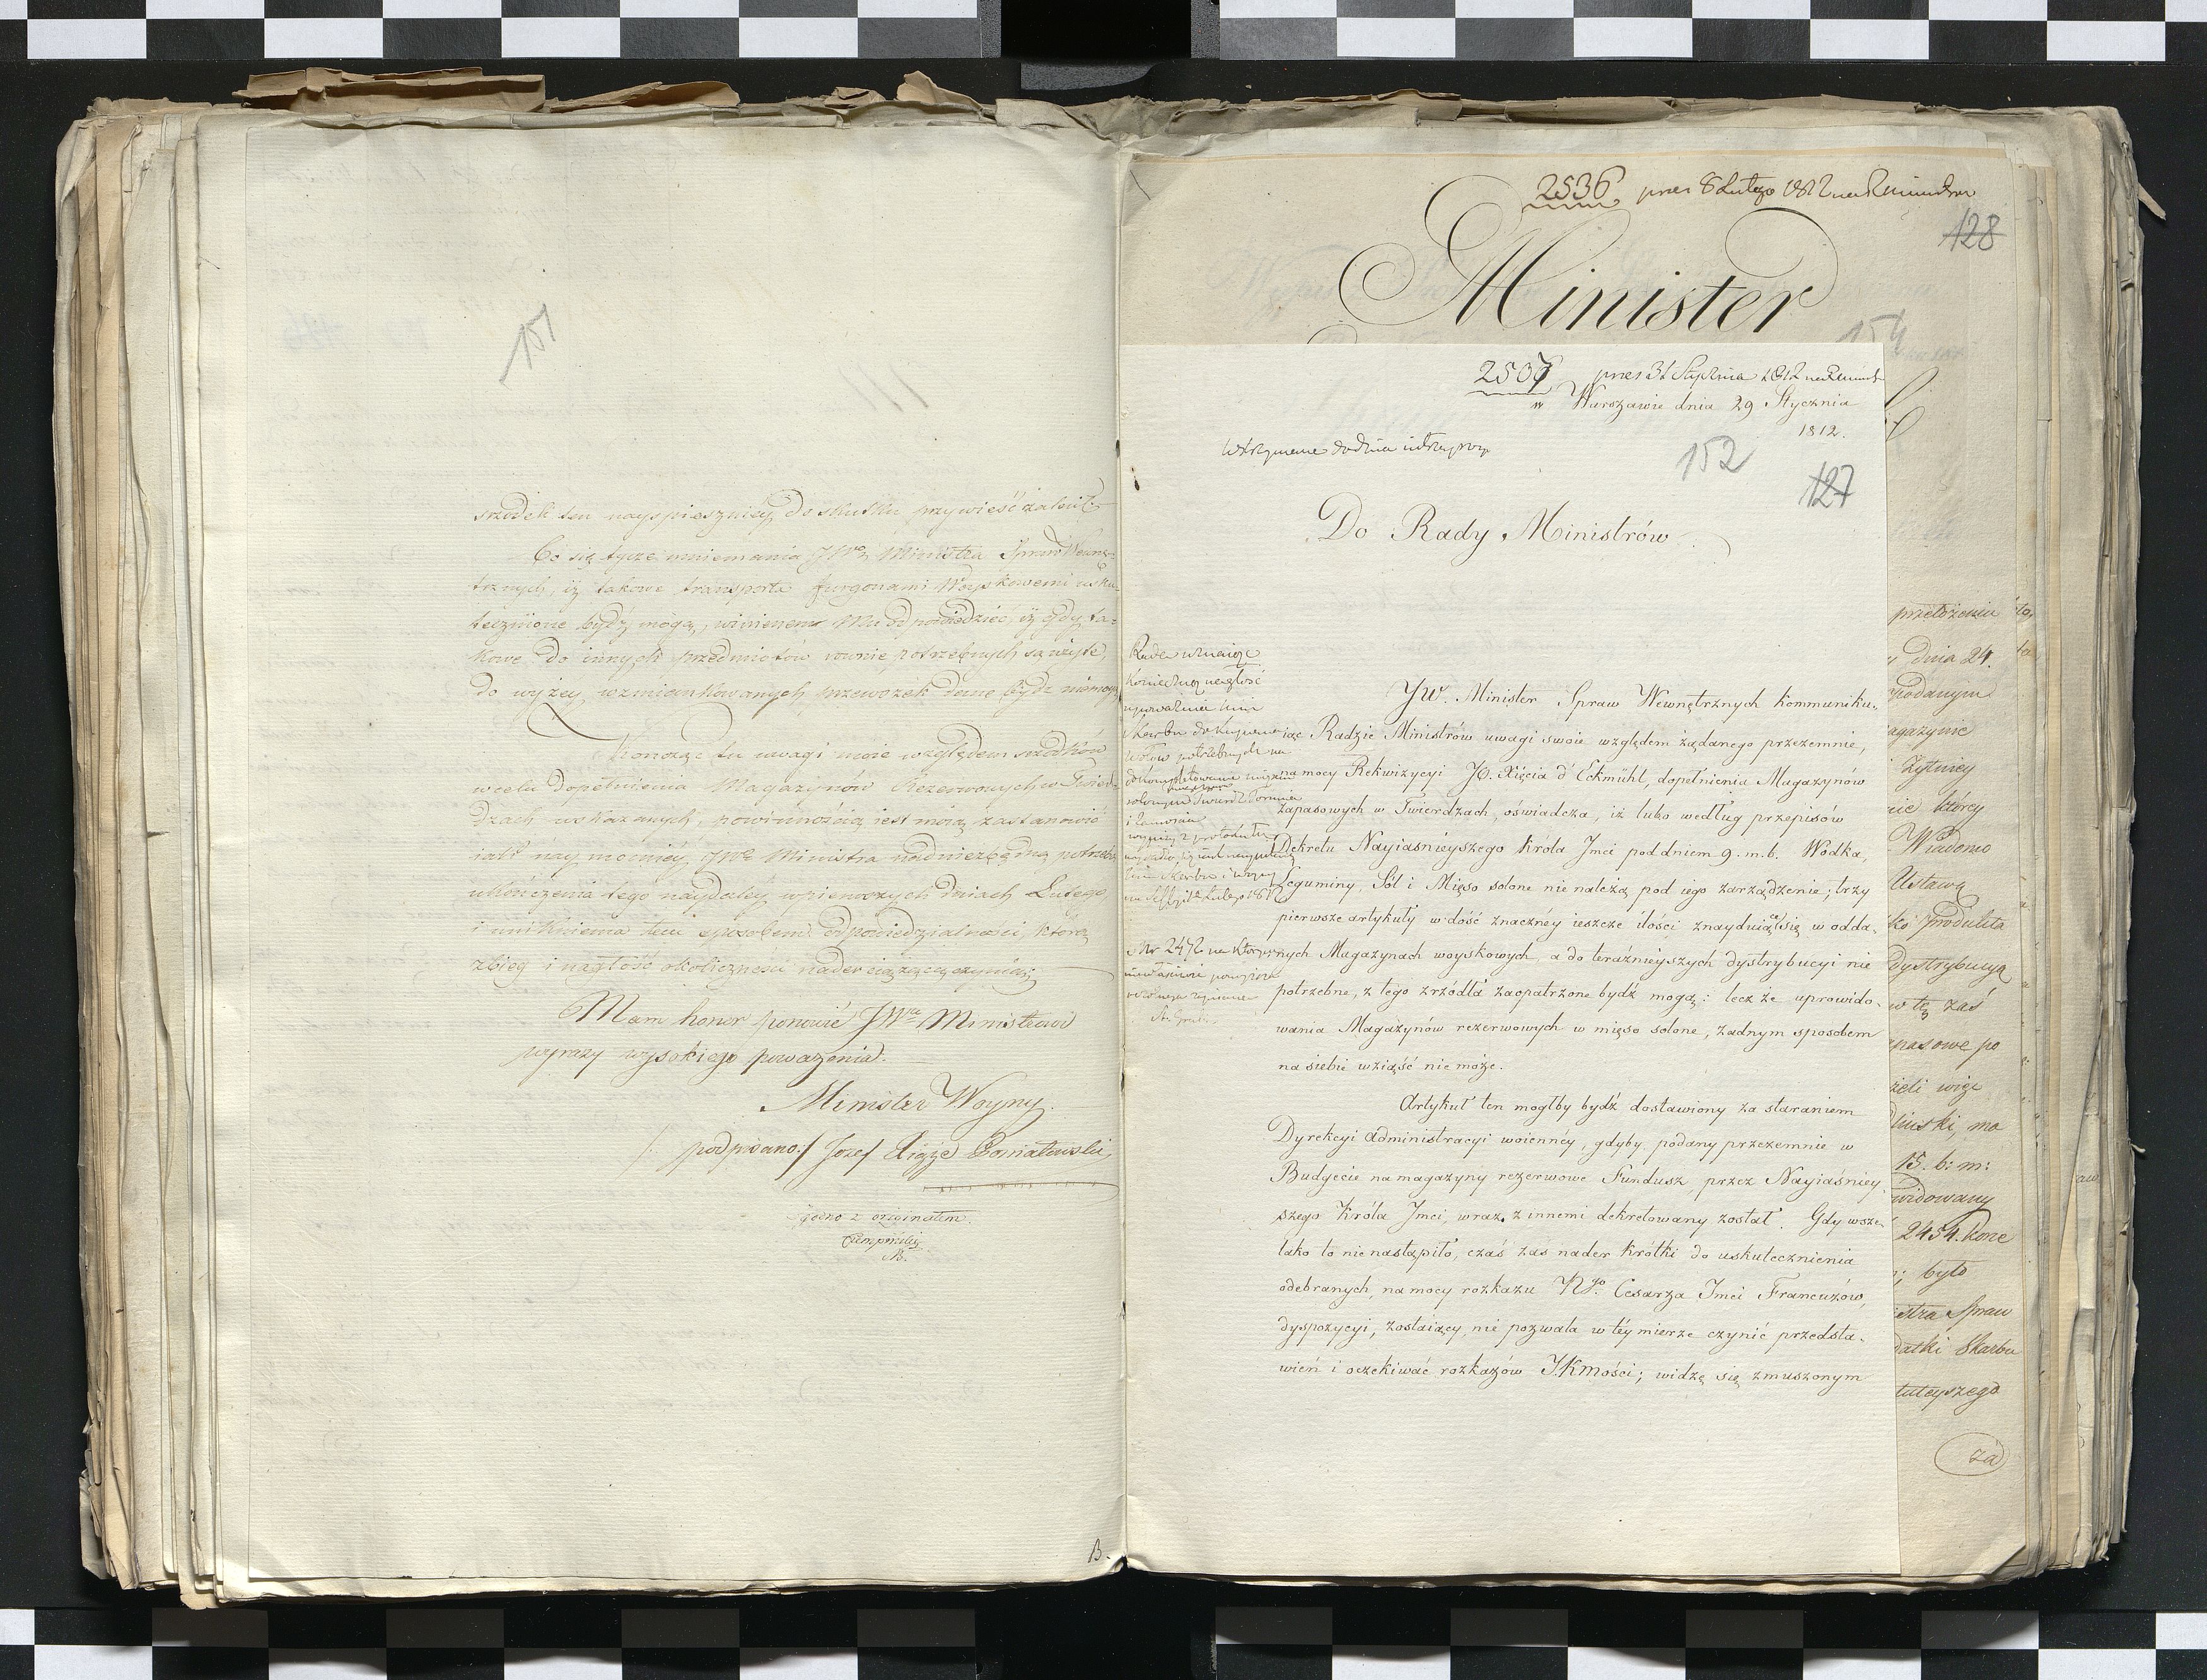 151
srzodek ten nayspieszniey do skutku przywieść zalecił.
Co się tycze mniemania JWo Ministra Spraw Wewnę-
trznych, iż takowe transporta furgonami Woyskowemi usku-
tecznione bydź mogą, winienem Mu odpowiedzieć, iż gdy ta-
kowe do innych przedmiotów rownie potrzebnych są użyte,
do wyżey wzmiankowanych przewozek dane bydź niemogą
Kończąc tu uwagi moie względem srzodków
w celu dopełnienia Magazynów Rezerwowych w Twier-
dzach wskazanych, powinnością iest moią zastanowić
iak naymocniey JWo Ministra nad niezbędną potrzebą
ukończenia tego naydaley w pierwszych dniach Lutego,
i uniknienia tem sposobem odpowiedzialności, którą
zbieg i nagłość okoliczności nader ciążącą czynią;
Mam honor ponowić JWmu Ministrowi
wyrazy wysokiego poważenia.
Minister Woyny.
/podpisano:/ Jozef Xiąże Poniatowski
zgodno z originałem
B.
2536 pres 8 Lutego 1812
128
Minister
154
2507 pres 31 Stycznia 1812
w Warszawie dnia 29 Stycznia
1812.
152
127
Do Rady Ministrów
Rada uznaiąc
konieczną nagłość
Nr 2472
JW. Minister Spraw Wewnętrznych kommuniku-
iąc Radzie Ministrów uwagi swoie względem żądanego przezemnie,
na mocy Rekwizycyi JO. Xięcia d'Eckmühl, dopełnienia Magazynów
zapasowych w Twierdzach, oświadcza, iż lubo według przepisów
Dekretu Nayiaśnieyszego Króla Jmci pod dniem 9. m. b. Wodka,
Leguminy, Sól i Mięso solone nie należą pod iego zarządzenie; trzy
pierwsze artykuły w dość znaczney ieszcze ilości znayduiące się w odda-
nych Magazynach woyskowych, a do teraźnieyszych dystrybucyi nie
potrzebne, z tego zrzódła zaopatrzone bydź mogą: lecz że uprowido-
wania Magazynów rezerwowych w mięso solone, żadnym sposobem
na siebie wziąść nie może.
Artykuł ten mogłby bydź dostawiony za staraniem
Dyrekcyi Administracyi woienney, gdyby podany przezemnie w
Budgecie na magazyny rezerwowe Fundusz, przez Nayiaśniey-
szego Króla Jmci, wraz z innemi dekretowany został. Gdy wsze-
lako to nie nastąpiło, czas zas nader krótki do uskutecznienia
odebranych, na mocy rozkazu Ngo. Cesarza Jmci Francuzów,
dyspozycyi, zostaiący, nie pozwala w téy mierze czynić przedsta-
wień i oczekiwać rozkazów J.K.Mości; widzę się zmuszonym
przełożenia
dnia 24.
podanym
agazynie
Zytniey
nie którey
Wiadomo
Ustawą
ko produkta
Dystrybucyą
w tę zaś
pasowe po
żeli więc
liński, ma
15. b: m:
widowany
2454. kone
było
istra Spraw
datki Skarbu
tuteyszego
za